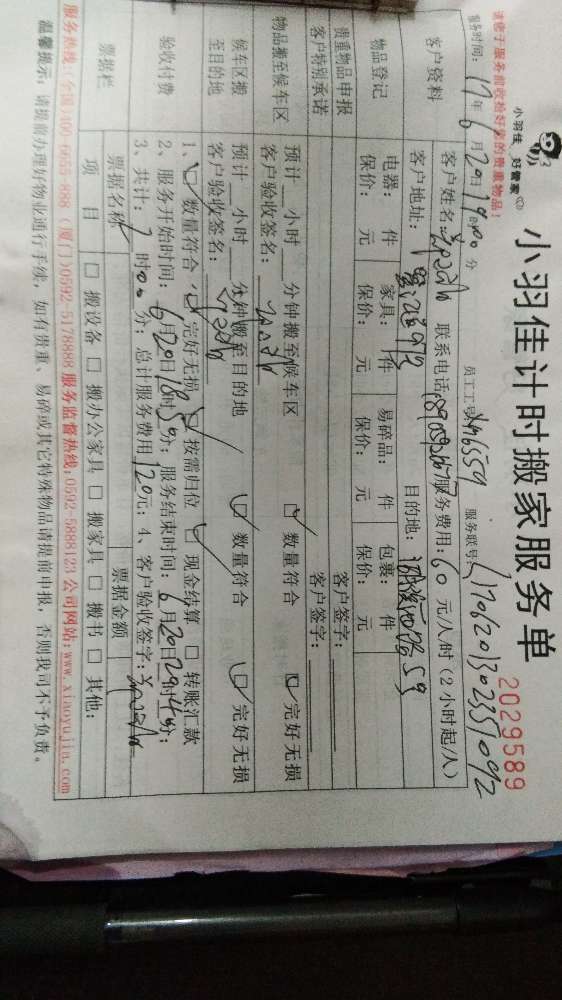 小羽佳 好管家
小羽佳计时搬家服务单
2029589
请您于服务前收拾好家的贵重物品！
服务时间：17年6月20日19时00分 员工工号 服务联号：
客户资料
客户姓名： 联系电话： 服务费用：60元/人/时（2小时起/人）
客户地址： 目的地：
物品登记
电器： 件 家具： 件 易碎品： 件 包裹： 件
保价： 元 保价： 元 保价： 元 保价： 元
贵重物品申报
客户特别承诺
客户签字：
客户签字：
物品搬至候车区
预计 小时 分钟搬至候车区 数量符合 完好无损
客户验收签名：
候车区搬至目的地
预计 小时 分钟搬至目的地 数量符合 完好无损
客户验收签名：
验收付费
1、 数量符合 完好无损 按需归位 现金结算 转账汇款
2、服务开始时间：6月20日 时 分；服务结束时间：6月20日 时 分；
3、共计： 时00分；总计服务费用120元；4、客户验收签字：
票据栏
票据名称 票据金额
项目 搬设备 搬办公家具 搬家具 搬书 其他：
服务热线：（全国）400-6655-888 （厦门）0592-5178888 服务监督热线：0592-5888123 公司网站：www.xiaoyujia.com
温馨提示：请提前办理好物业通行手续，如有贵重、易碎或其它特殊物品请提前申报，否则我司不予负责。